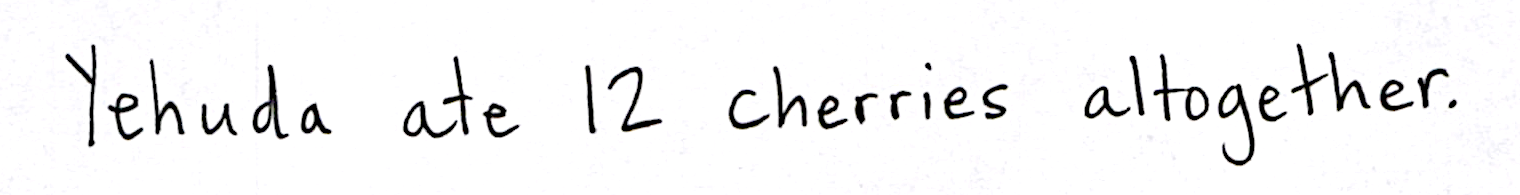 Yehuda ate 12 cherries altogether.